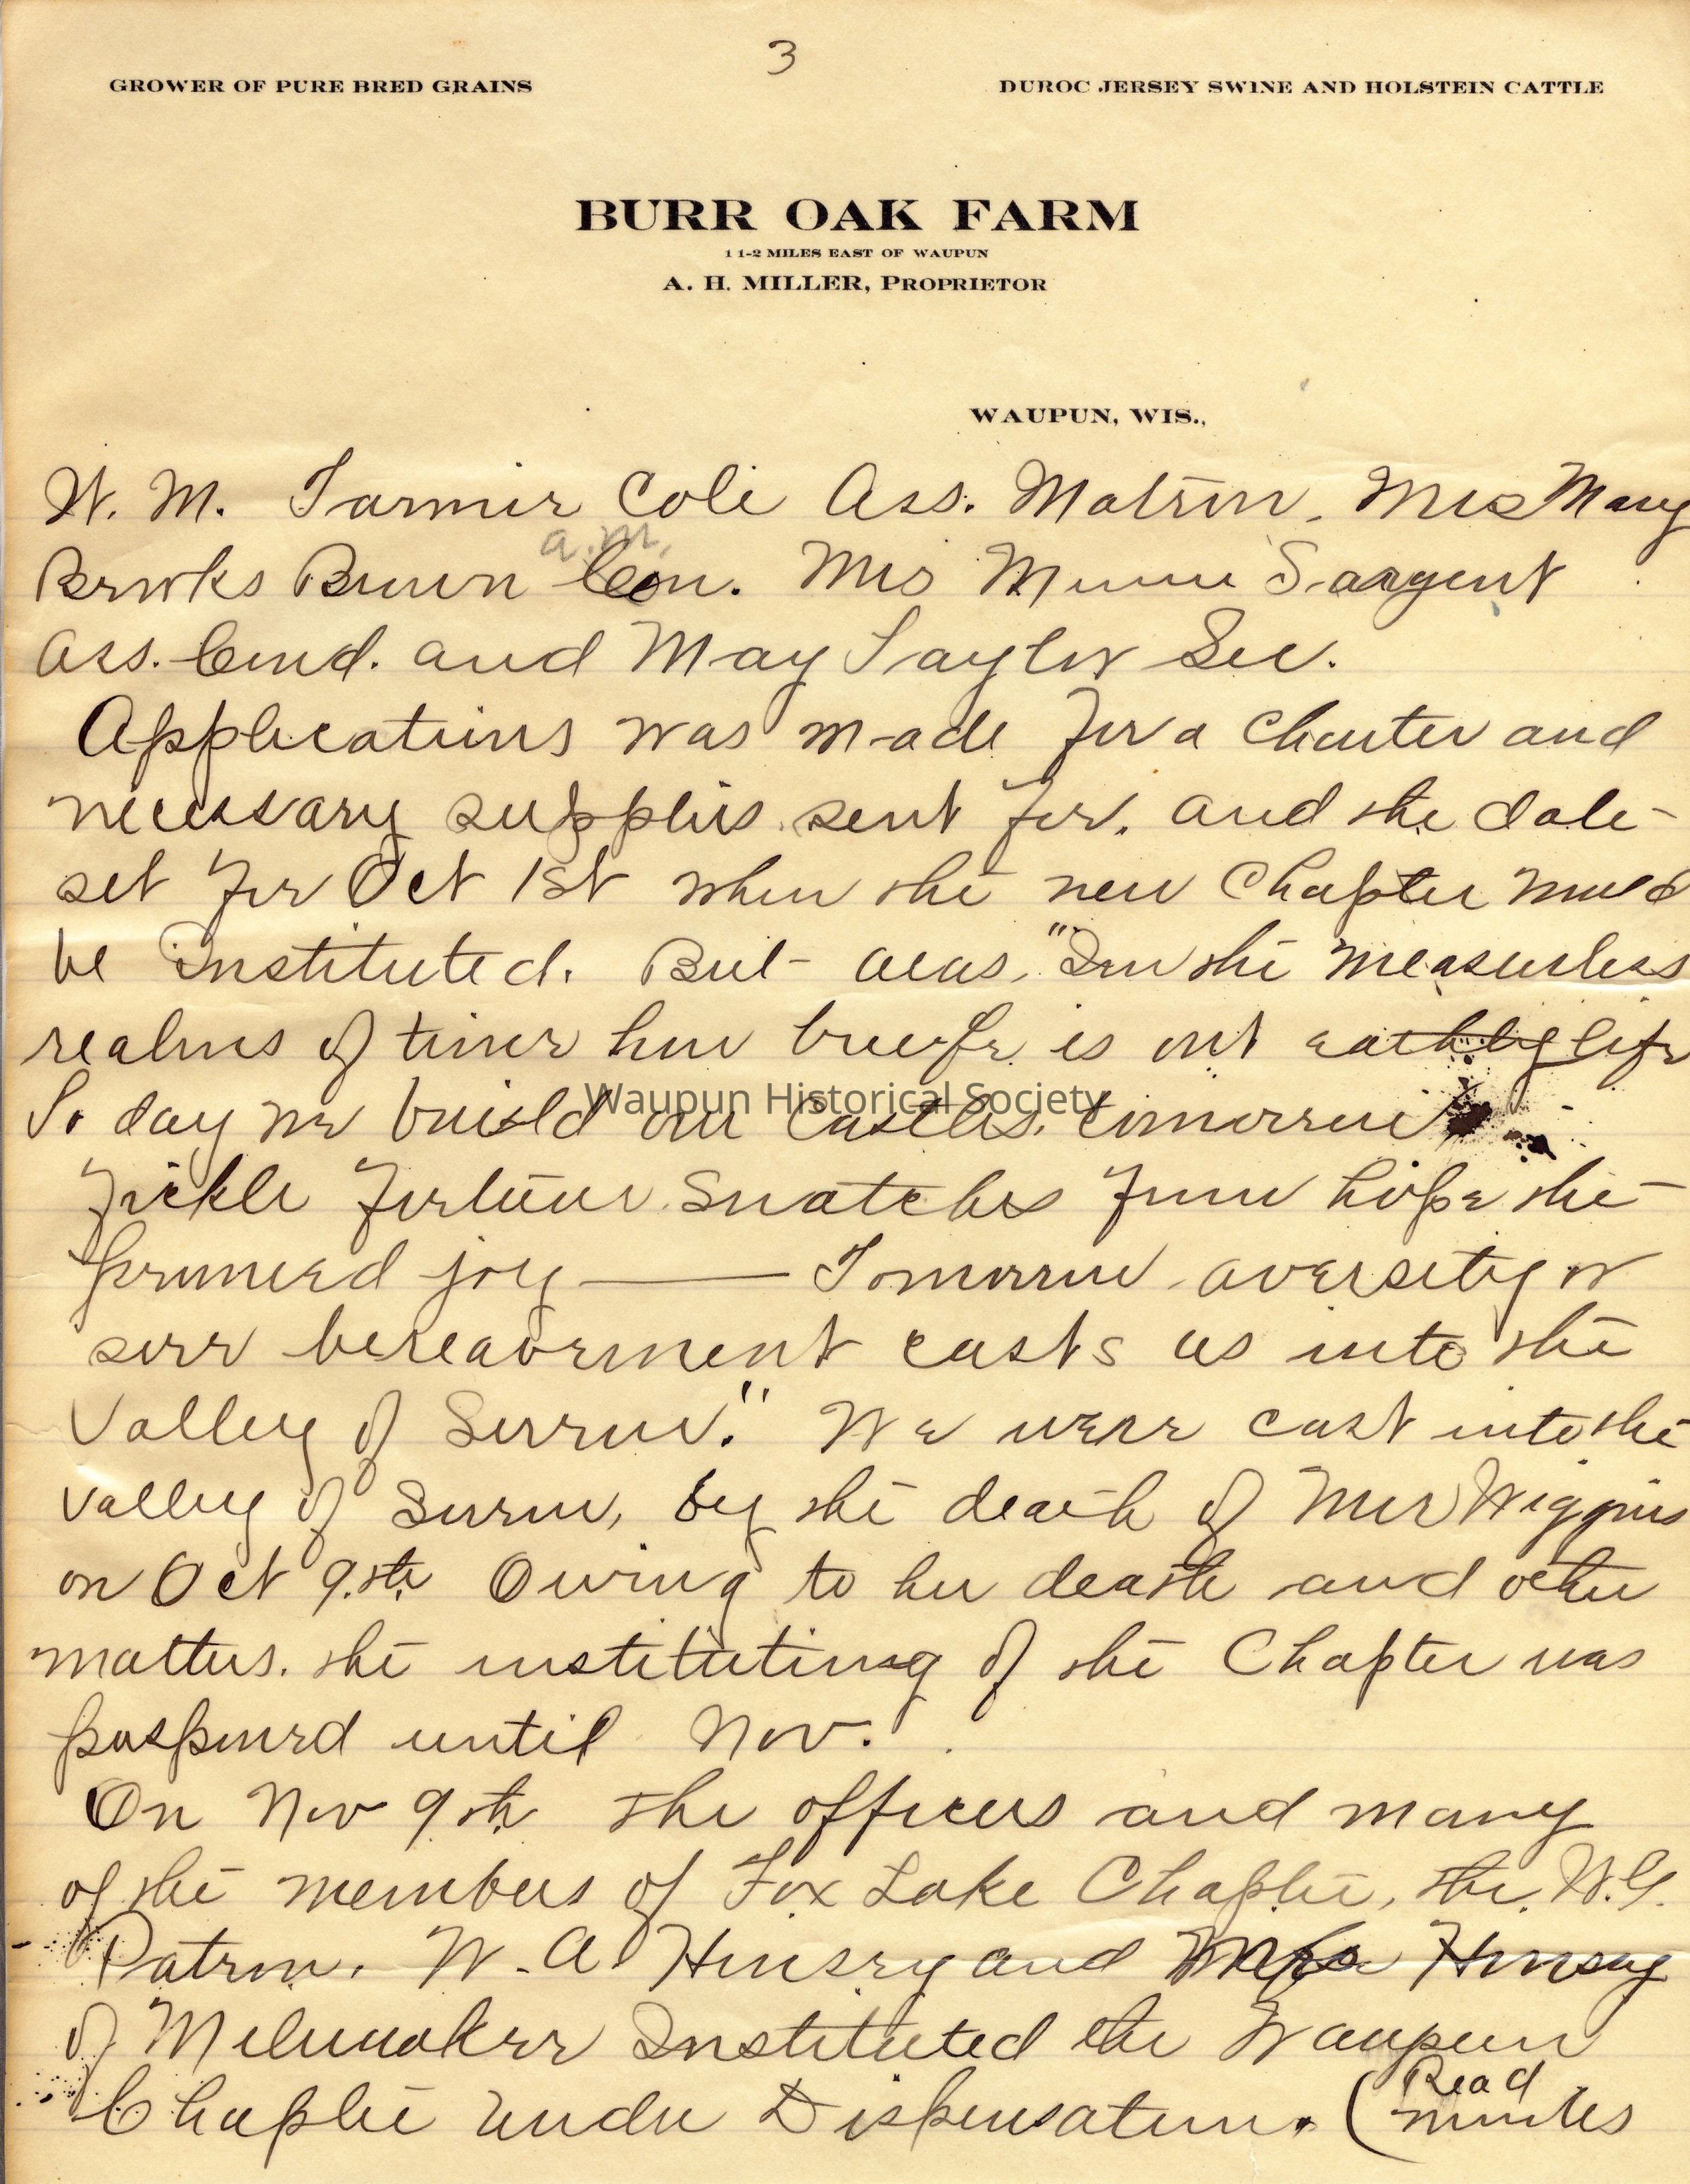 3
GROWER OF PURE BRED GRAINS
DUROC JERSEY SWINE AND HOLSTEIN CATTLE
BURR OAK FARM
1 1-2 MILES EAST OF WAUPUN
A. H. MILLER, PROPRIETOR
WAUPUN, WIS.,
W. M. Cole Ass. Matron, Mrs Mary
a.m.
Brooks Brown Con. Mrs Minnie Sargent
Ass. Cond. and May Taylor Sec.
Applications was made for a Charter and
necessary supplies sent for. and the date
set for Oct 1st when the new Chapter would
be Instituted. But alas, "In the measurless
realms of time how briefe is our earthly life
To day we build our Castles, tomorrow
fickle fortune snatches from hope the
promised joy — Tomorrow aversity or
sore bereavement casts us into the
Valley of Sorrow." We were cast into the
valley of Sorrow, by the death of Mrs Wiggins
on Oct 9th. Owing to her death and other
matters. the instituting of the Chapter was
posponed until Nov.
On Nov 9th the officers and many
of the members of Fox Lake Chapter, the W.G.
Patron, W. A. and Mrs
of Milwaukee Instituted the Waupun
Chapter under Dispensation. (Read
minutes
Waupun Historical Society